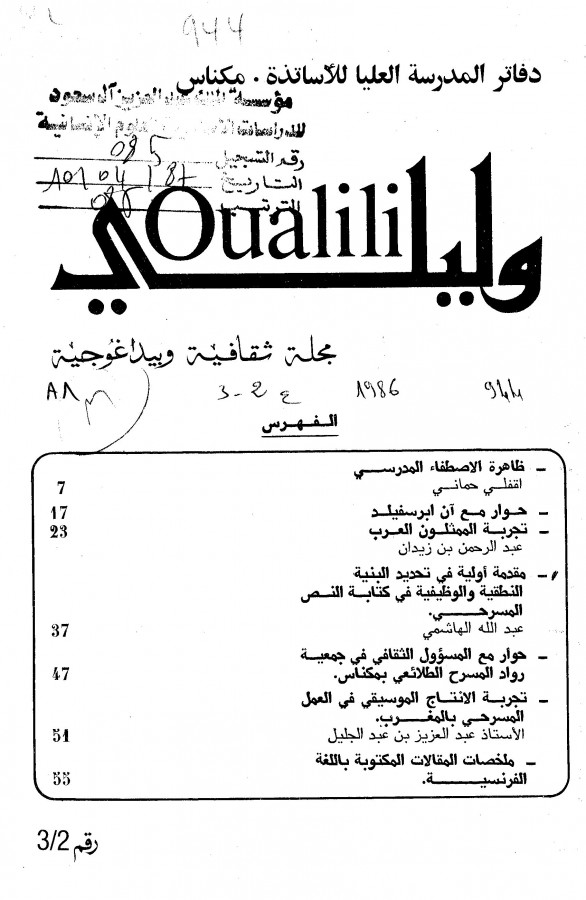 944
دفاتر المدرسة العليا للأساتذة . مكناس
مؤسسة الملك عبد العزيز آل سعود
للدراسات الإسلامية والعلوم الإنسانية
رقم التسجيل 085
التاريخ A01 04 / 87
الترتيب
وليلي Oualili
مجلة ثقافية وبيداغوجية
A1 3-2 ع 1986 944
الفهرس
– ظاهرة الاصطفاء المدرسي
اقفلي حماني 7
– حوار مع آن ابرسفيلد 17
– تجربة الممثلون العرب 23
عبد الرحمن بن زيدان
– مقدمة أولية في تحديد البنية
النطقية والوظيفية في كتابة النص
المسرحي.
عبد الله الهاشمي 37
– حوار مع المسؤول الثقافي في جمعية
رواد المسرح الطلائعي بمكناس. 47
– تجربة الانتاج الموسيقي في العمل
المسرحي بالمغرب.
الأستاذ عبد العزيز بن عبد الجليل 51
– ملخصات المقالات المكتوبة باللغة
الفرنسية. 55
رقم 3/2